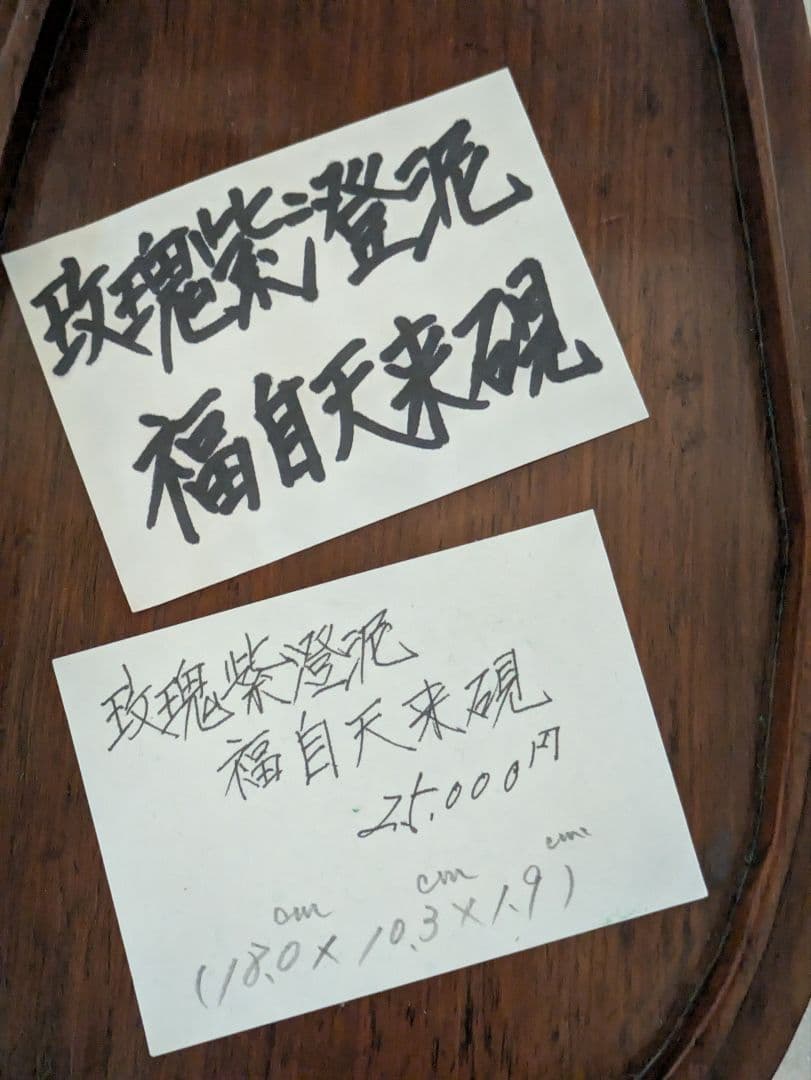 玫瑰紫澄泥
福自天来硯
玫瑰紫澄泥
福自天来硯
25,000円
cm cm cm
(18.0×10.3×1.9)